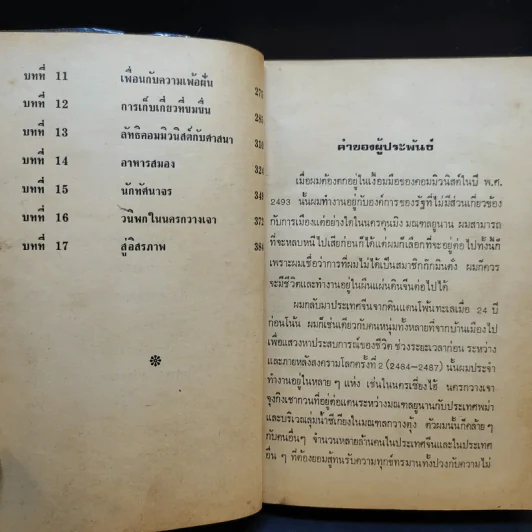 บทที่ 11 เพื่อนกับความเพ้อฝัน
บทที่ 12 การเก็บเกี่ยวที่ขมขื่น
บทที่ 13 ลัทธิคอมมิวนิสต์กับศาสนา 316
บทที่ 14 อาหารสมอง 324
บทที่ 15 นักทัศนาจร 348
บทที่ 16 วนิพกในนครกวางเจา 372
บทที่ 17 สู่อิสรภาพ 384
คำของผู้ประพันธ์
เมื่อผมต้องตกอยู่ในเงื้อมมือของคอมมิวนิสต์ในปี พ.ศ.
2493 นั้นผมทำงานอยู่กับองค์การของรัฐที่ไม่มีส่วนเกี่ยวข้อง
กับการเมืองแต่อย่างใดในนครคุนมิง มณฑลยูนาน ผมสามารถ
ที่จะหลบหนีไปเสียก่อนก็ได้แต่ผมก็เลือกที่จะอยู่ต่อไปทั้งนี้ก็
เพราะผมเชื่อว่าการที่ผมไม่ได้เป็นสมาชิกก๊กมินตั๋ง ผมก็ควร
จะมีชีวิตและทำงานอยู่ในผืนแผ่นดินจีนต่อไปได้
ผมกลับมาประเทศจีนจากดินแดนโพ้นทะเลเมื่อ 24 ปี
ก่อนโน้น ผมก็เช่นเดียวกับคนหนุ่มทั้งหลายที่จากบ้านเมืองไป
เพื่อแสวงหาประสบการณ์ของชีวิต ช่วงระยะเวลาก่อน ระหว่าง
และภายหลังสงครามโลกครั้งที่ 2 (2484-2487) นั้นผมประจำ
ทำงานอยู่ในหลาย ๆ แห่ง เช่นในนครเซี่ยงไฮ้ นครกวางเจา
จุงกิงเขากวนที่อยู่ต่อแดนระหว่างมณฑลยูนานกับประเทศพม่า
และบริเวณลุ่มน้ำซีเกียงในมณฑลกวางตุ้ง ตัวผมนั้นก็คล้าย ๆ
กับคนอื่นๆ จำนวนหลายล้านคนในประเทศจีนและในประเทศ
อื่น ๆ ที่ต้องยอมสู้ทนรับความทุกข์ทรมานทั้งปวงกับความไม่